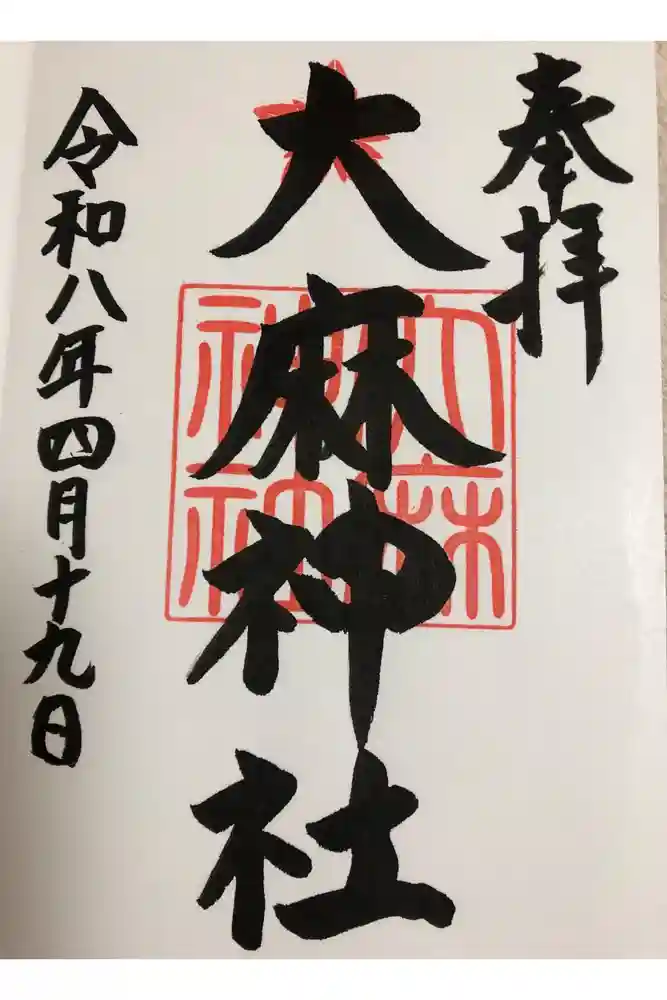 奉拝
大麻神社
大麻
神社
令和八年四月十九日